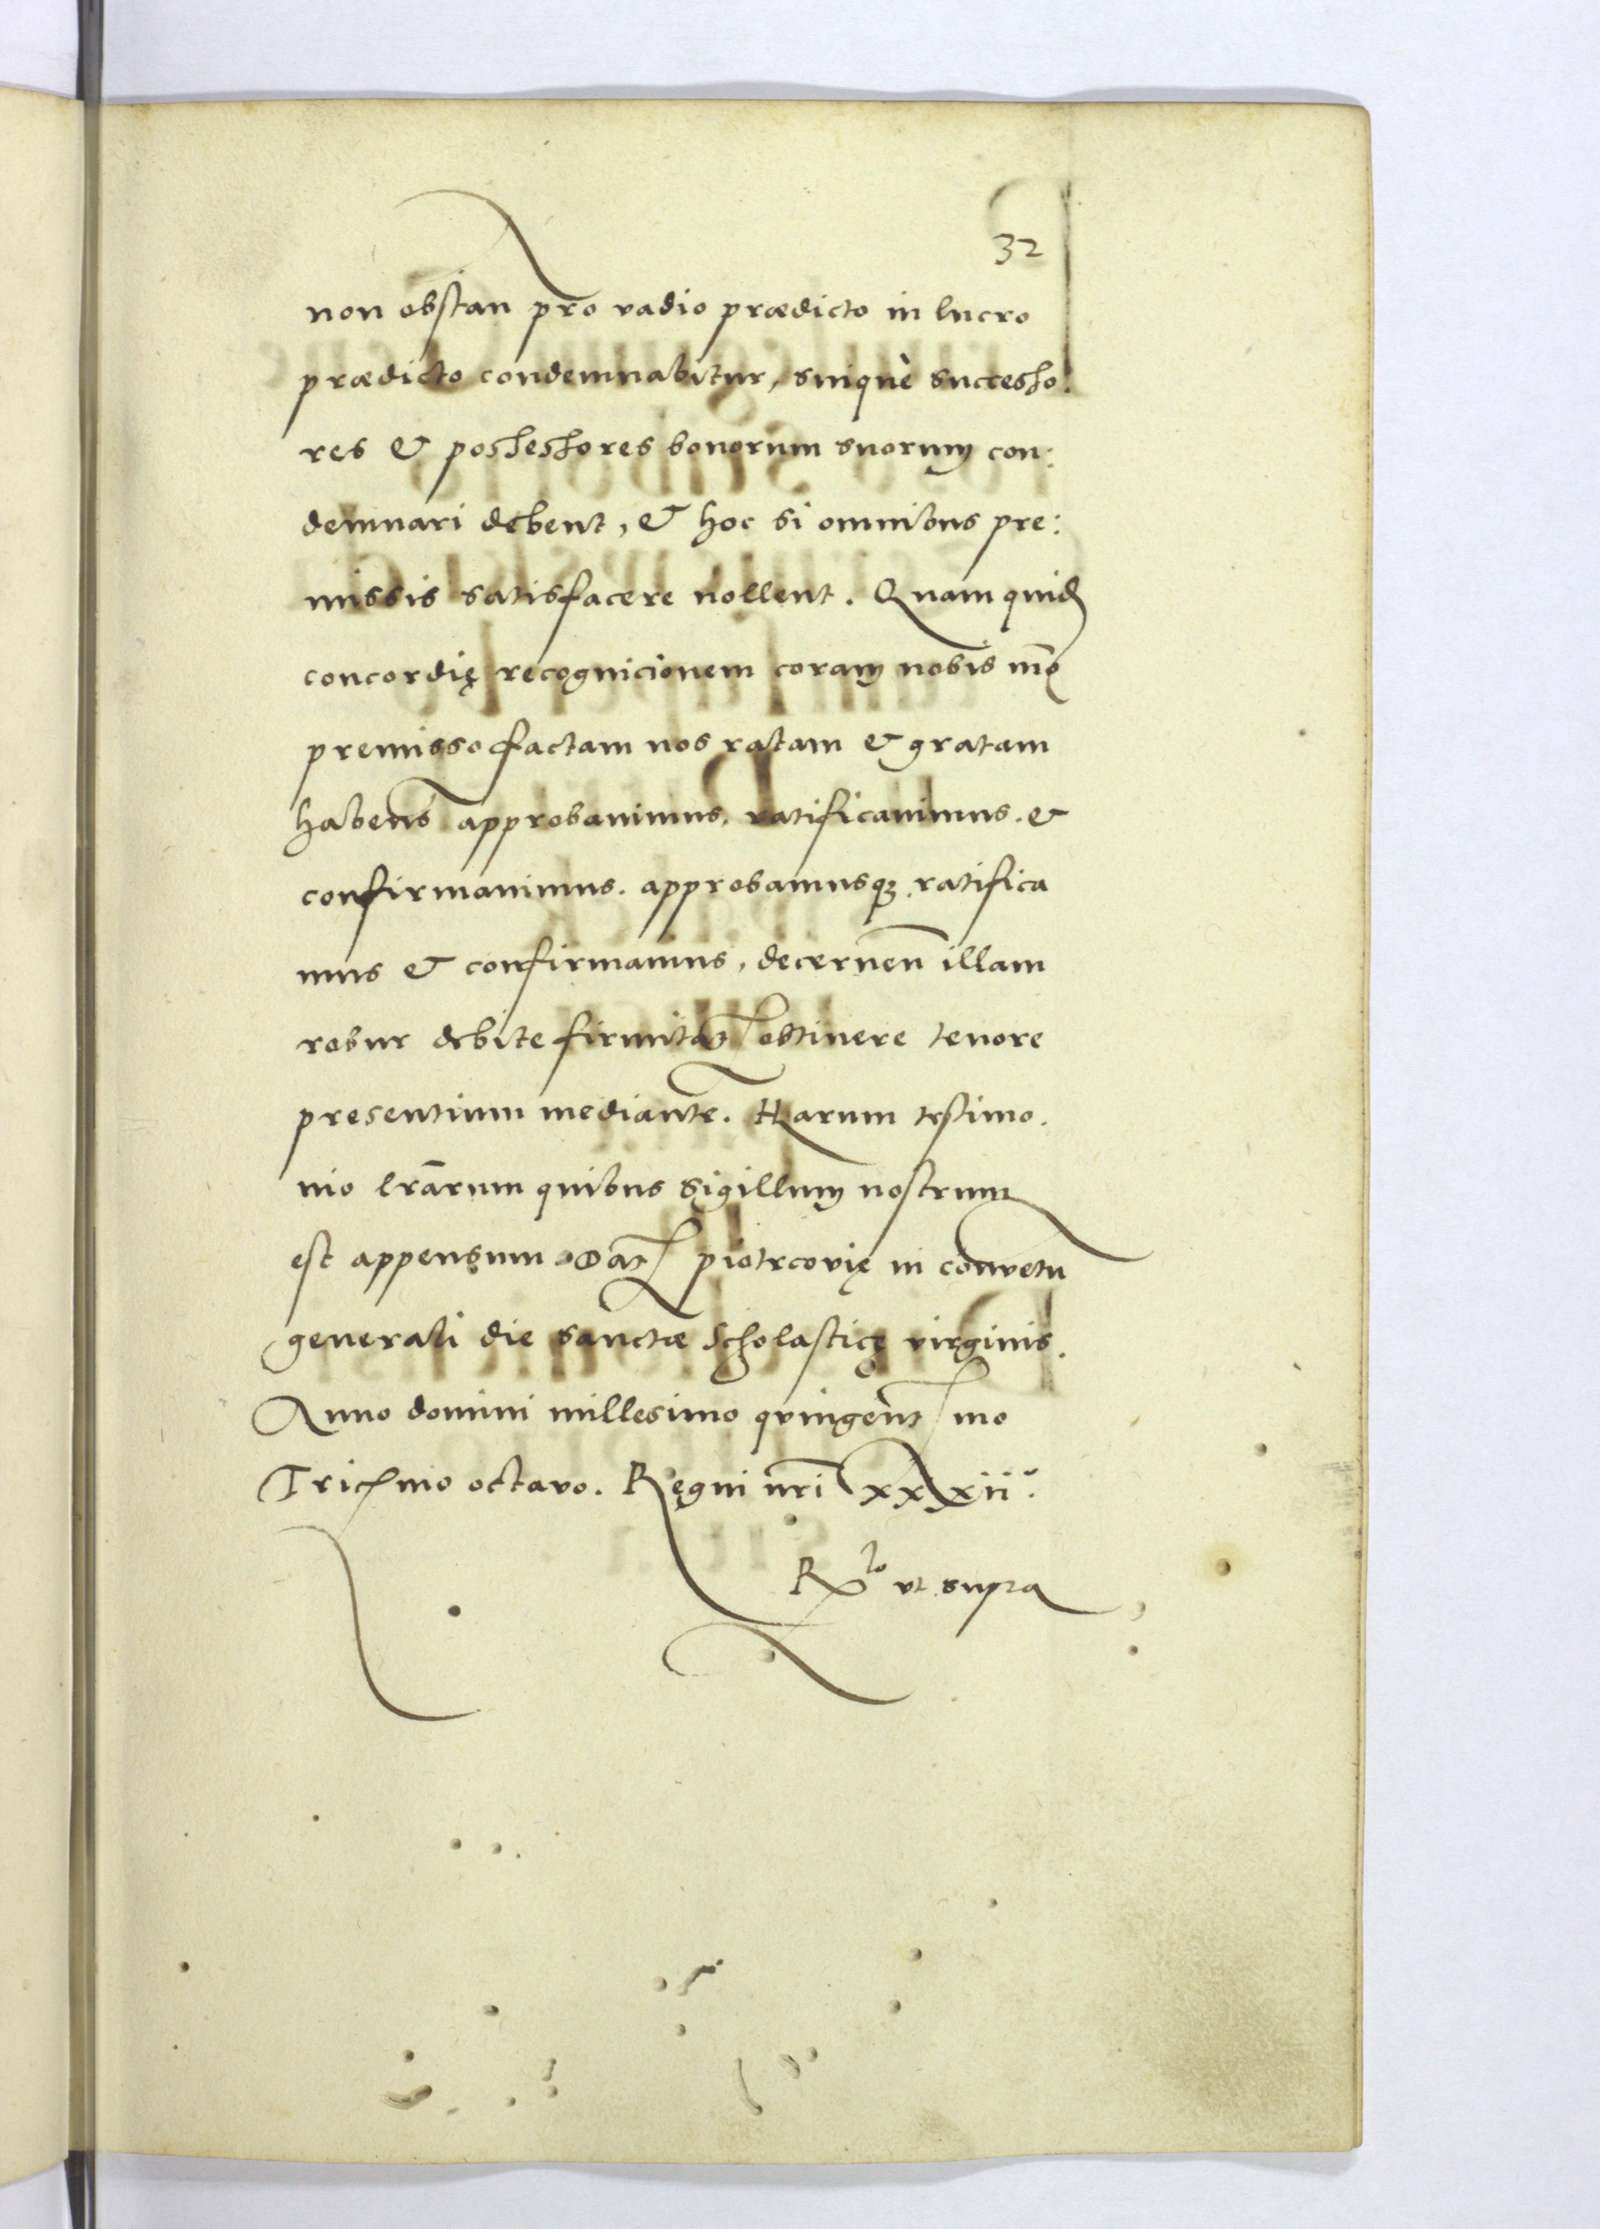 32
non obstan pro vadio prædicto in lucro
prædicto condemnabitur, suiquè successo:
res & possessores bonorum suorum con:
demnari debent, & hoc si omnibus pre:
missis satisfacere nollent. Quam quid
concordię recognicionem coram nobis mo
premisso factam nos ratam & gratam
habens approbavimus, ratificavimus, &
confirmavimus, approbamusq; ratifica
mus & confirmamus, decernen illam
robur debite firmitat obtinere tenore
presentium mediante. Harum testimo.
nio lrarum quibus sigillum nostrum
est appensum Dat piotrcovię in conventu
generali die sanctæ Scholasticę virginis.
Anno domini millesimo qvingent mo
Tric mo octavo. Regni nri xxxii.
R to ut supra